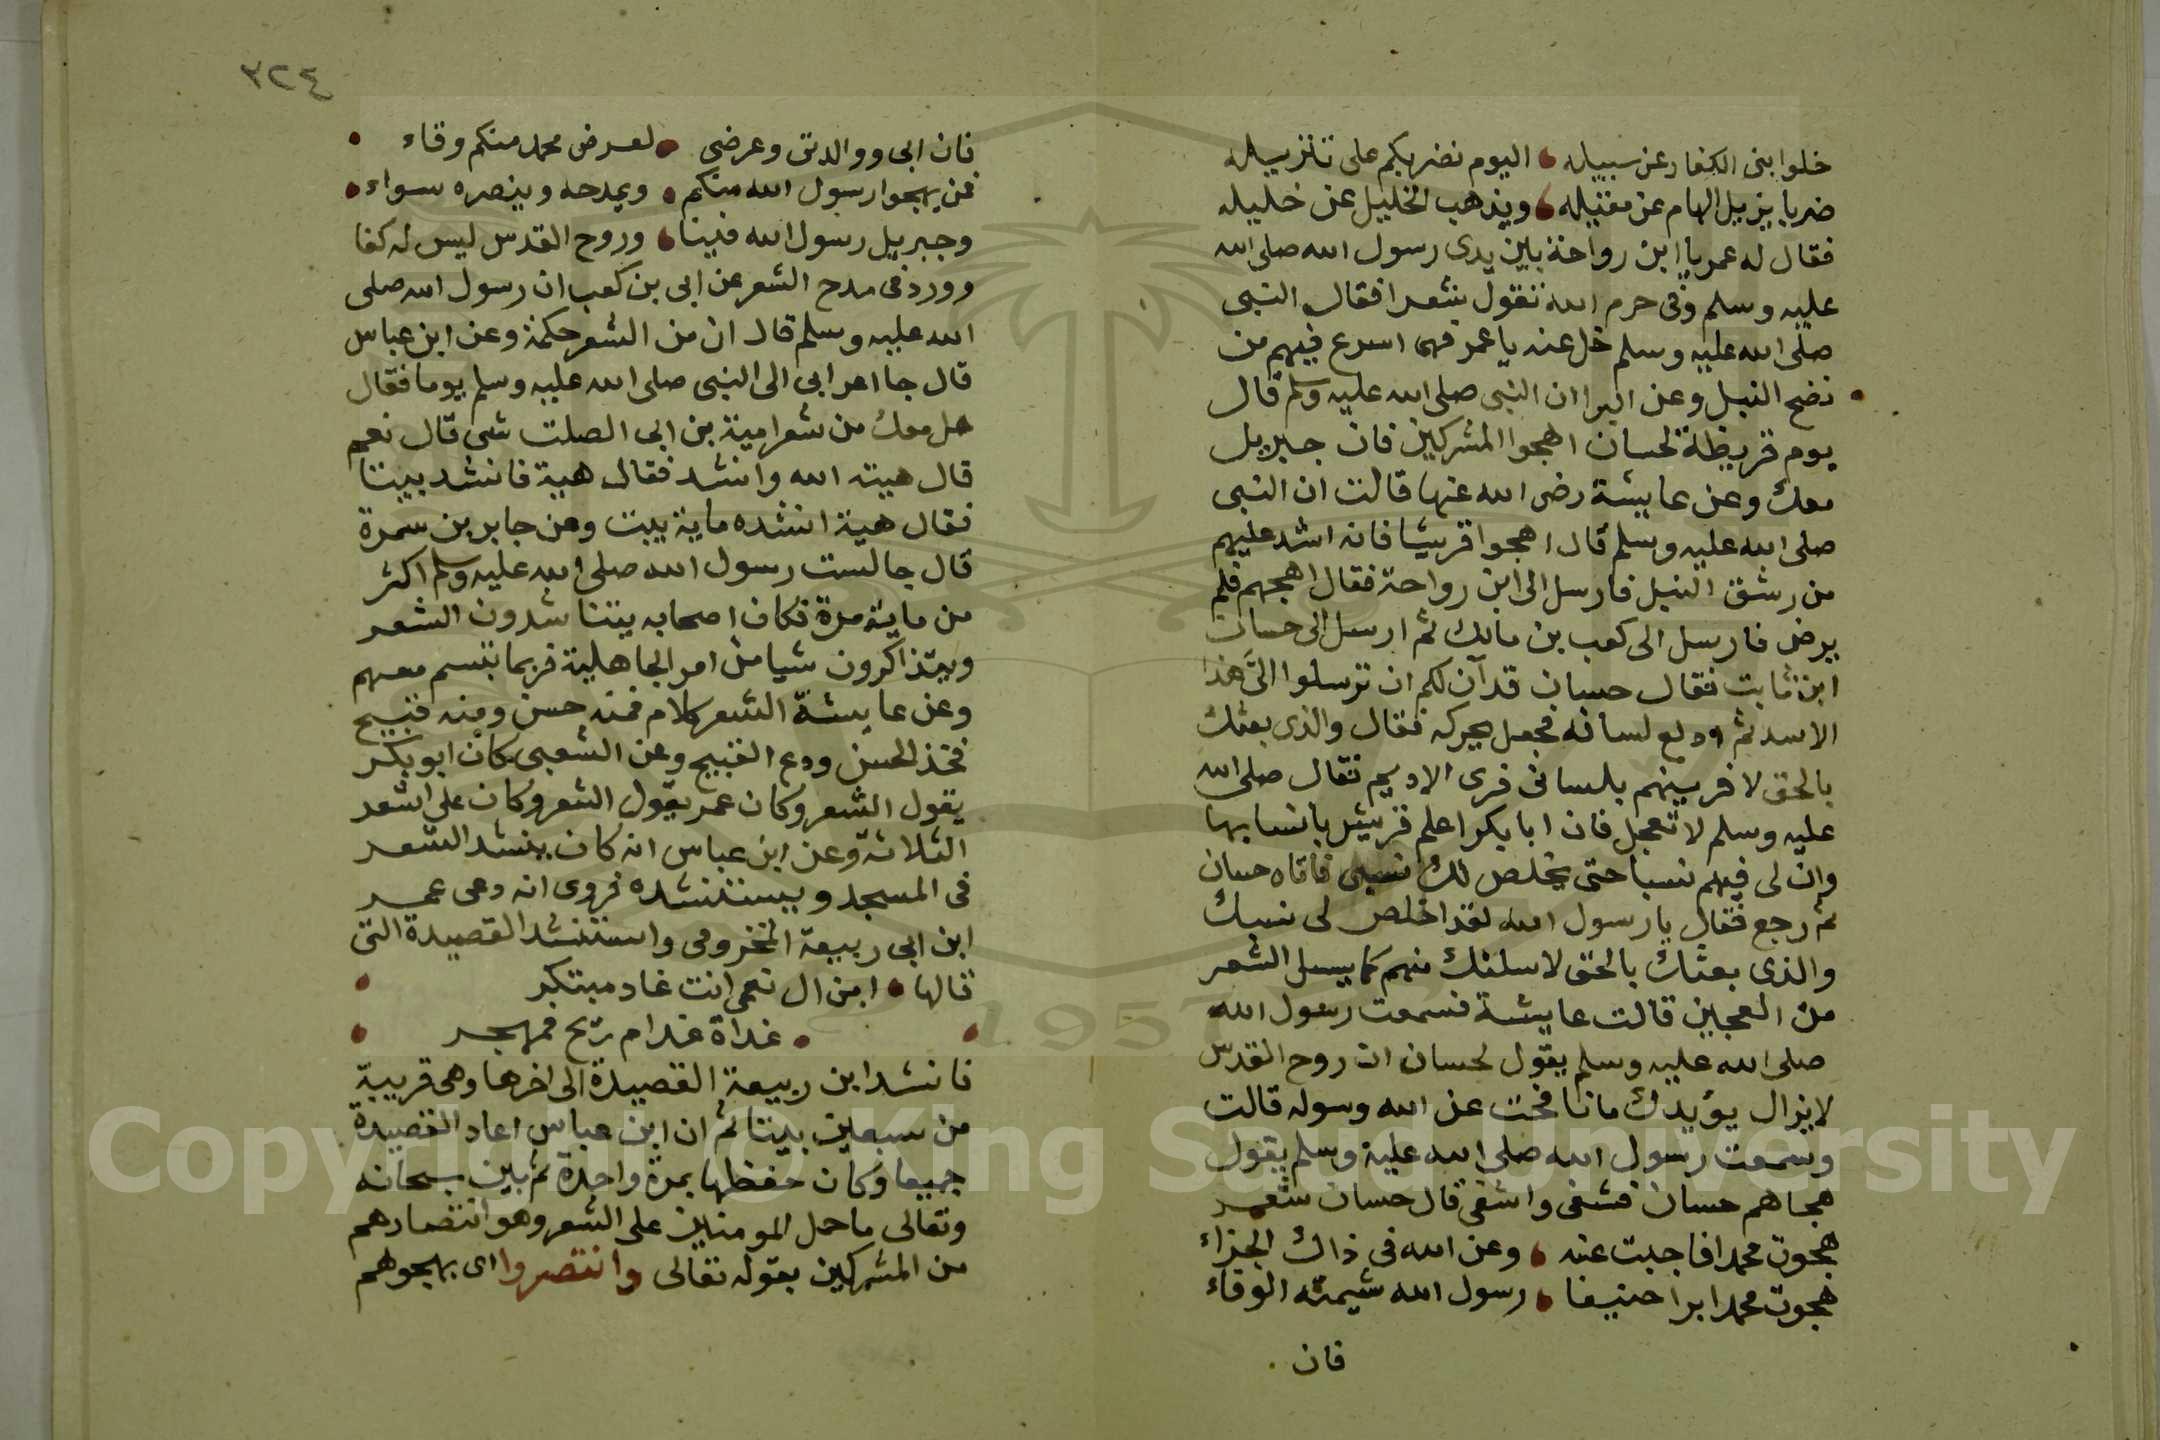 خلوا بنى الكفار عن سبيله اليوم نضربكم على تنزيله
ضربا يزيل الهام عن مقيله ويذهب الخليل عن خليله
فقال له عمر يا ابن رواحة بين يدى رسول الله صلى الله
عليه وسلم وفى حرم الله تقول شعرا فقال النبى
صلى الله عليه وسلم خل عنه يا عمر فهى اسرع فيهم من
نضح النبل وعن البرا ان النبى صلى الله عليه وسلم قال
يوم قريظة لحسان اهجوا المشركين فان جبريل
معك وعن عايشة رضى الله عنها قالت ان النبى
صلى الله عليه وسلم قال اهجوا قريشا فانه اشد عليهم
من رشق النبل فارسل الى ابن رواحة فقال اهجهم فلم
يرض فارسل الى كعب بن مالك ثم ارسل الى حسان
ابن ثابت فقال حسان قد آن لكم ان ترسلوا الىّ هذا
الاسد ثم ودلع لسانه فجعل يحركه فقال والذى بعثك
بالحق لافرينهم بلسانى فرى الاديم فقال صلى الله
عليه وسلم لا تعجل فان ابا بكر اعلم قريش بانسابها
وان لى فيهم نسبا حتى يخلص لك نسبى فاتاه حسان
ثم رجع فقال يا رسول الله لقد اخلص لى نسبك
والذى بعثك بالحق لاسلنك منهم كما يسل الشعر
من العجين قالت عايشة فسمعت رسول الله
صلى الله عليه وسلم يقول لحسان ان روح القدس
لا يزال يؤيدك ما نافحت عن الله وسوله قالت
وسمعت رسول الله صلى الله عليه وسلم يقول
هجاهم حسان فشفى واشفى قال حسان شعر
هجوت محمدا فاجبت عنه وعن الله فى ذاك الجزاء
هجوت محمدا برا حنيفا رسول الله شيمته الوفاء
فان
٣٢٤
فان ابى ووالدتى وعرضى لعرض محمد منكم وقاء
فمن يهجوا رسول الله منكم ويمدحه وينصره سواء
وجبريل رسول الله فينا وروح القدس ليس له كفا
وورد فى مدح الشعر عن ابى بن كعب ان رسول الله صلى
الله عليه وسلم قال ان من الشعر حكمة وعن ابن عباس
قال جا اعرابى الى النبى صلى الله عليه وسلم يوما فقال
هل معك من شعر امية بن ابى الصلت شى قال نعم
قال هيه الله وانشد فقال هية فانشد بيتا
فقال هية انشده ماية بيت وعن جابر بن سمرة
قال جالست رسول الله صلى الله عليه وسلم اكثر
من ماية مرة فكان اصحابه يتناشدون الشعر
ويتذاكرون شيا من امر الجاهلية فربما تبسم معهم
وعن عايشة الشعر كلام فمنه حسن ومنه قبيح
فخذ الحسن ودع القبيح وعن الشعبى كان ابو بكر
يقول الشعر وكان عمر يقول الشعر وكان على اشعر
الثلاثة وعن ابن عباس انه كان ينشد الشعر
فى المسجد ويستنشده فروى انه دعى عمر
ابن ابى ربيعة المخزومى واستنشد القصيدة التى
قالها امن ال نعمى انت غاد مبتكر
غداة غد ام رتح فمهجر
فانشد ابن ربيعة القصيدة الى اخرها وهى قريبة
من سبعين بيتا ثم ان ابن عباس اعاد القصيدة
جميعا وكان حفظها بمرة واحدة ثم بين سبحانه
وتعالى ما حمل المومنين على الشعر وهو انتصارهم
من المشركين بقوله تعالى وانتصروا اى بهجوهم
Copyright © King Saud University
1957